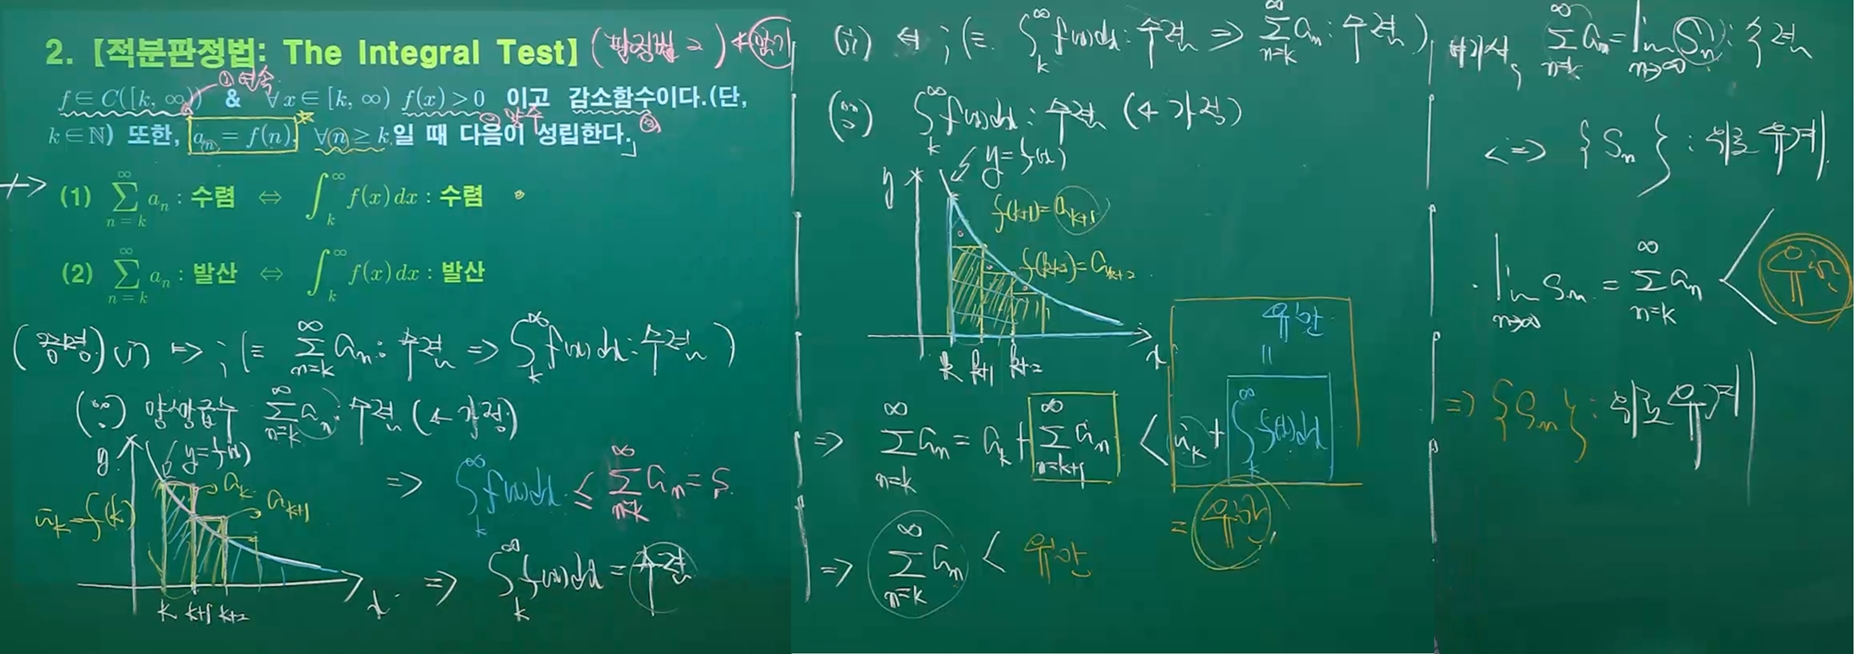 2. 【적분판정법: The Integral Test】 (판정법 2) ← 암기
① 연속
f ∈ C([k, ∞)) & ∀x ∈ [k, ∞) f(x) > 0 이고 감소함수이다.(단,
② 양수 ③
k ∈ ℕ) 또한, a_n = f(n), ∀n ≥ k 일 때 다음이 성립한다.
(1) ∑_{n=k}^{∞} a_n : 수렴 ⇔ ∫_k^∞ f(x) dx : 수렴
(2) ∑_{n=k}^{∞} a_n : 발산 ⇔ ∫_k^∞ f(x) dx : 발산
(증명) (i) ⇒ ; (≡ ∑_{n=k}^{∞} a_n : 수렴 ⇒ ∫_k^∞ f(x)dx : 수렴)
(∵) 양항급수 ∑_{n=k}^{∞} a_n : 수렴 (← 가정)
y y = f(x)
a_k = f(k) a_k a_{k+1}
k k+1 k+2 x
⇒ ∫_k^∞ f(x)dx ≤ ∑_{n=k}^{∞} a_n = S
⇒ ∫_k^∞ f(x)dx = 수렴
(ii) ⇐ ; (≡ ∫_k^∞ f(x)dx : 수렴 ⇒ ∑_{n=k}^{∞} a_n : 수렴)
(∵) ∫_k^∞ f(x)dx : 수렴 (← 가정)
y y = f(x)
f(k+1) = a_{k+1}
f(k+2) = a_{k+2}
k k+1 k+2 x
유한
=
⇒ ∑_{n=k}^{∞} a_n = a_k + ∑_{n=k+1}^{∞} a_n < a_k + ∫_k^∞ f(x)dx
= 유한
⇒ ∑_{n=k}^{∞} a_n < 유한
여기서, ∑_{n=k}^{∞} a_n = lim_{n→∞} S_n : 수렴
⇔ {S_n} : 위로 유계
lim_{n→∞} S_n = ∑_{n=k}^{∞} a_n < 유한
⇒ {S_n} : 위로 유계